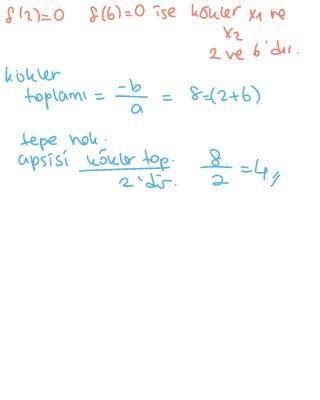 f(2)=0 f(6)=0 ise kökler x1 ve
x2
2 ve 6'dır.
kökler
toplamı = -b/a = 8=(2+6)
tepe nok.
apsisi kökler top. / 2'dir. 8/2 =4,,